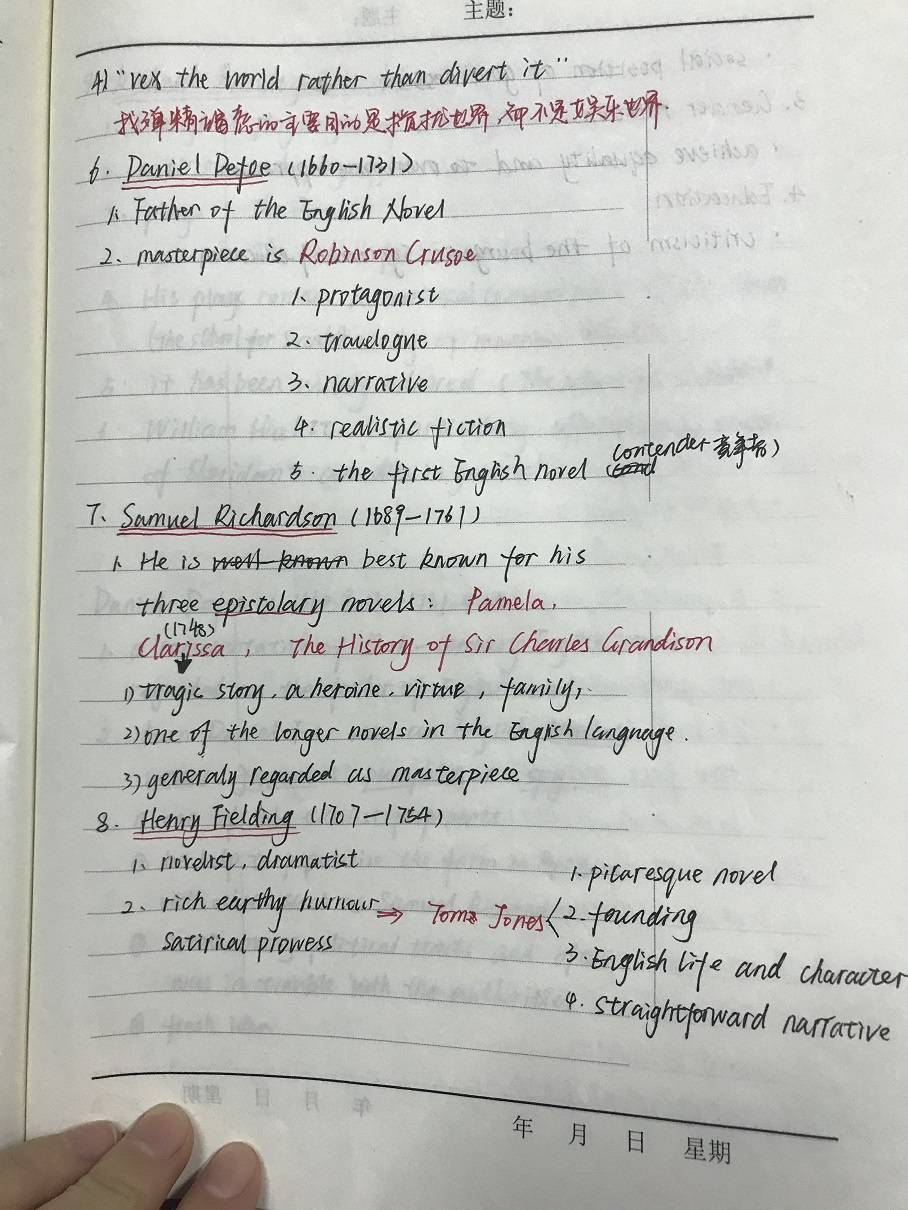 主题:
4) "vex the world rather than divert it"
我弹精谒虑的主要目的是搅扰世界,却不是娱乐世界.
6. Daniel Defoe (1660-1731)
1. Father of the English Novel
2. masterpiece is Robinson Crusoe
1. protagonist
2. travelogue
3. narrative
4. realistic fiction
5. the first English novel (contender 竞争者)
7. Samuel Richardson (1689-1761)
1. He is well-known best known for his
three epistolary novels: Pamela,
(1748)
Clarissa, The History of Sir Charles Grandison
1) tragic story, a heroine, virtue, family,.
2) one of the longer novels in the English language.
3) generaly regarded as masterpiece
8. Henry Fielding (1707-1754)
1. novelist, dramatist
2. rich earthy humour ⇒ Tom Jones
satirical prowess
1. picaresque novel
2. founding
3. English life and character
4. straightforward narrative
年 月 日 星期